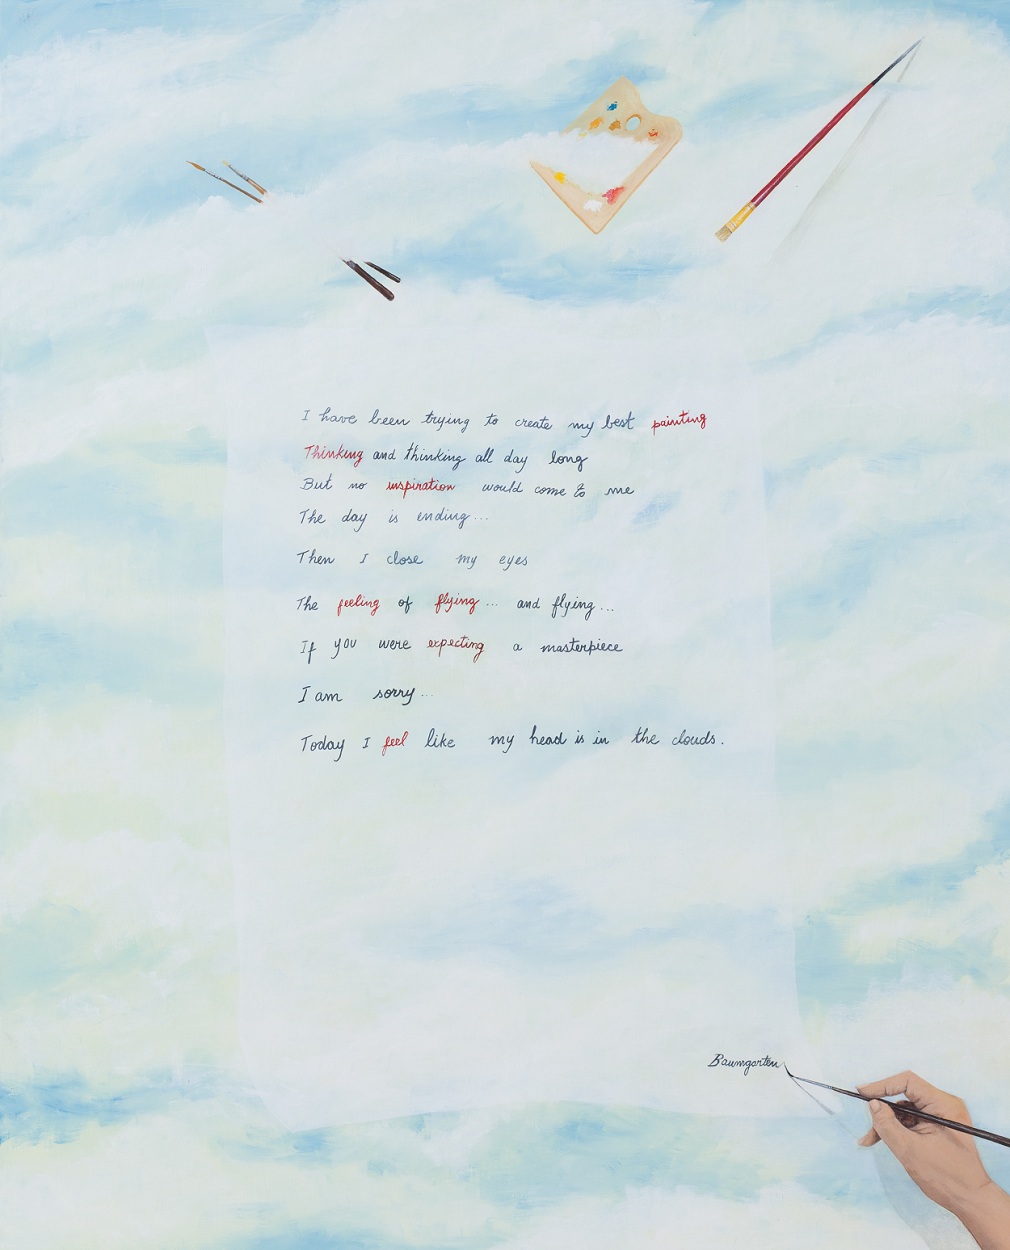 I have been trying to create my best painting
Thinking and thinking all day long
But no inspiration would come to me
The day is ending...
Then I close my eyes
The feeling of flying... and flying...
If you were expecting a masterpiece
I am sorry...
Today I feel like my head is in the clouds.
Baumgarten